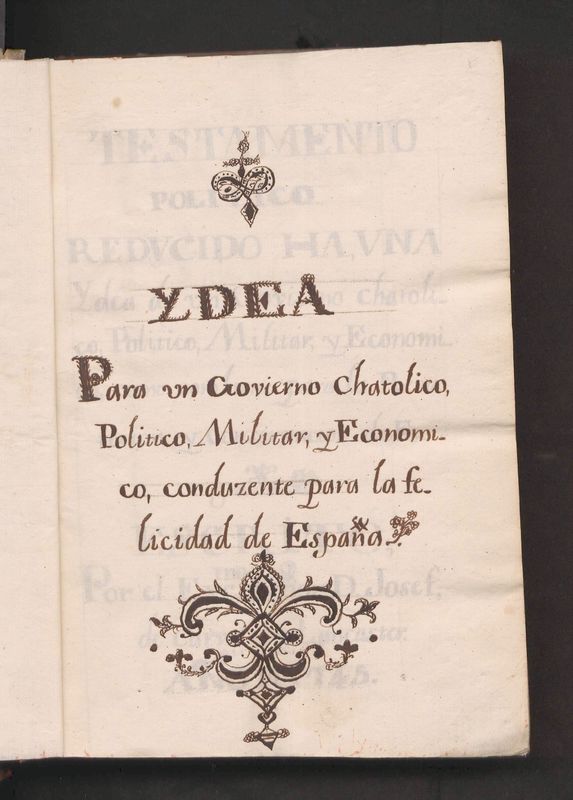 YDEA
Para vn Govierno Chatolico,
Politico, Militar, y Economi-
co, conduzente para la fe-
licidad de España.